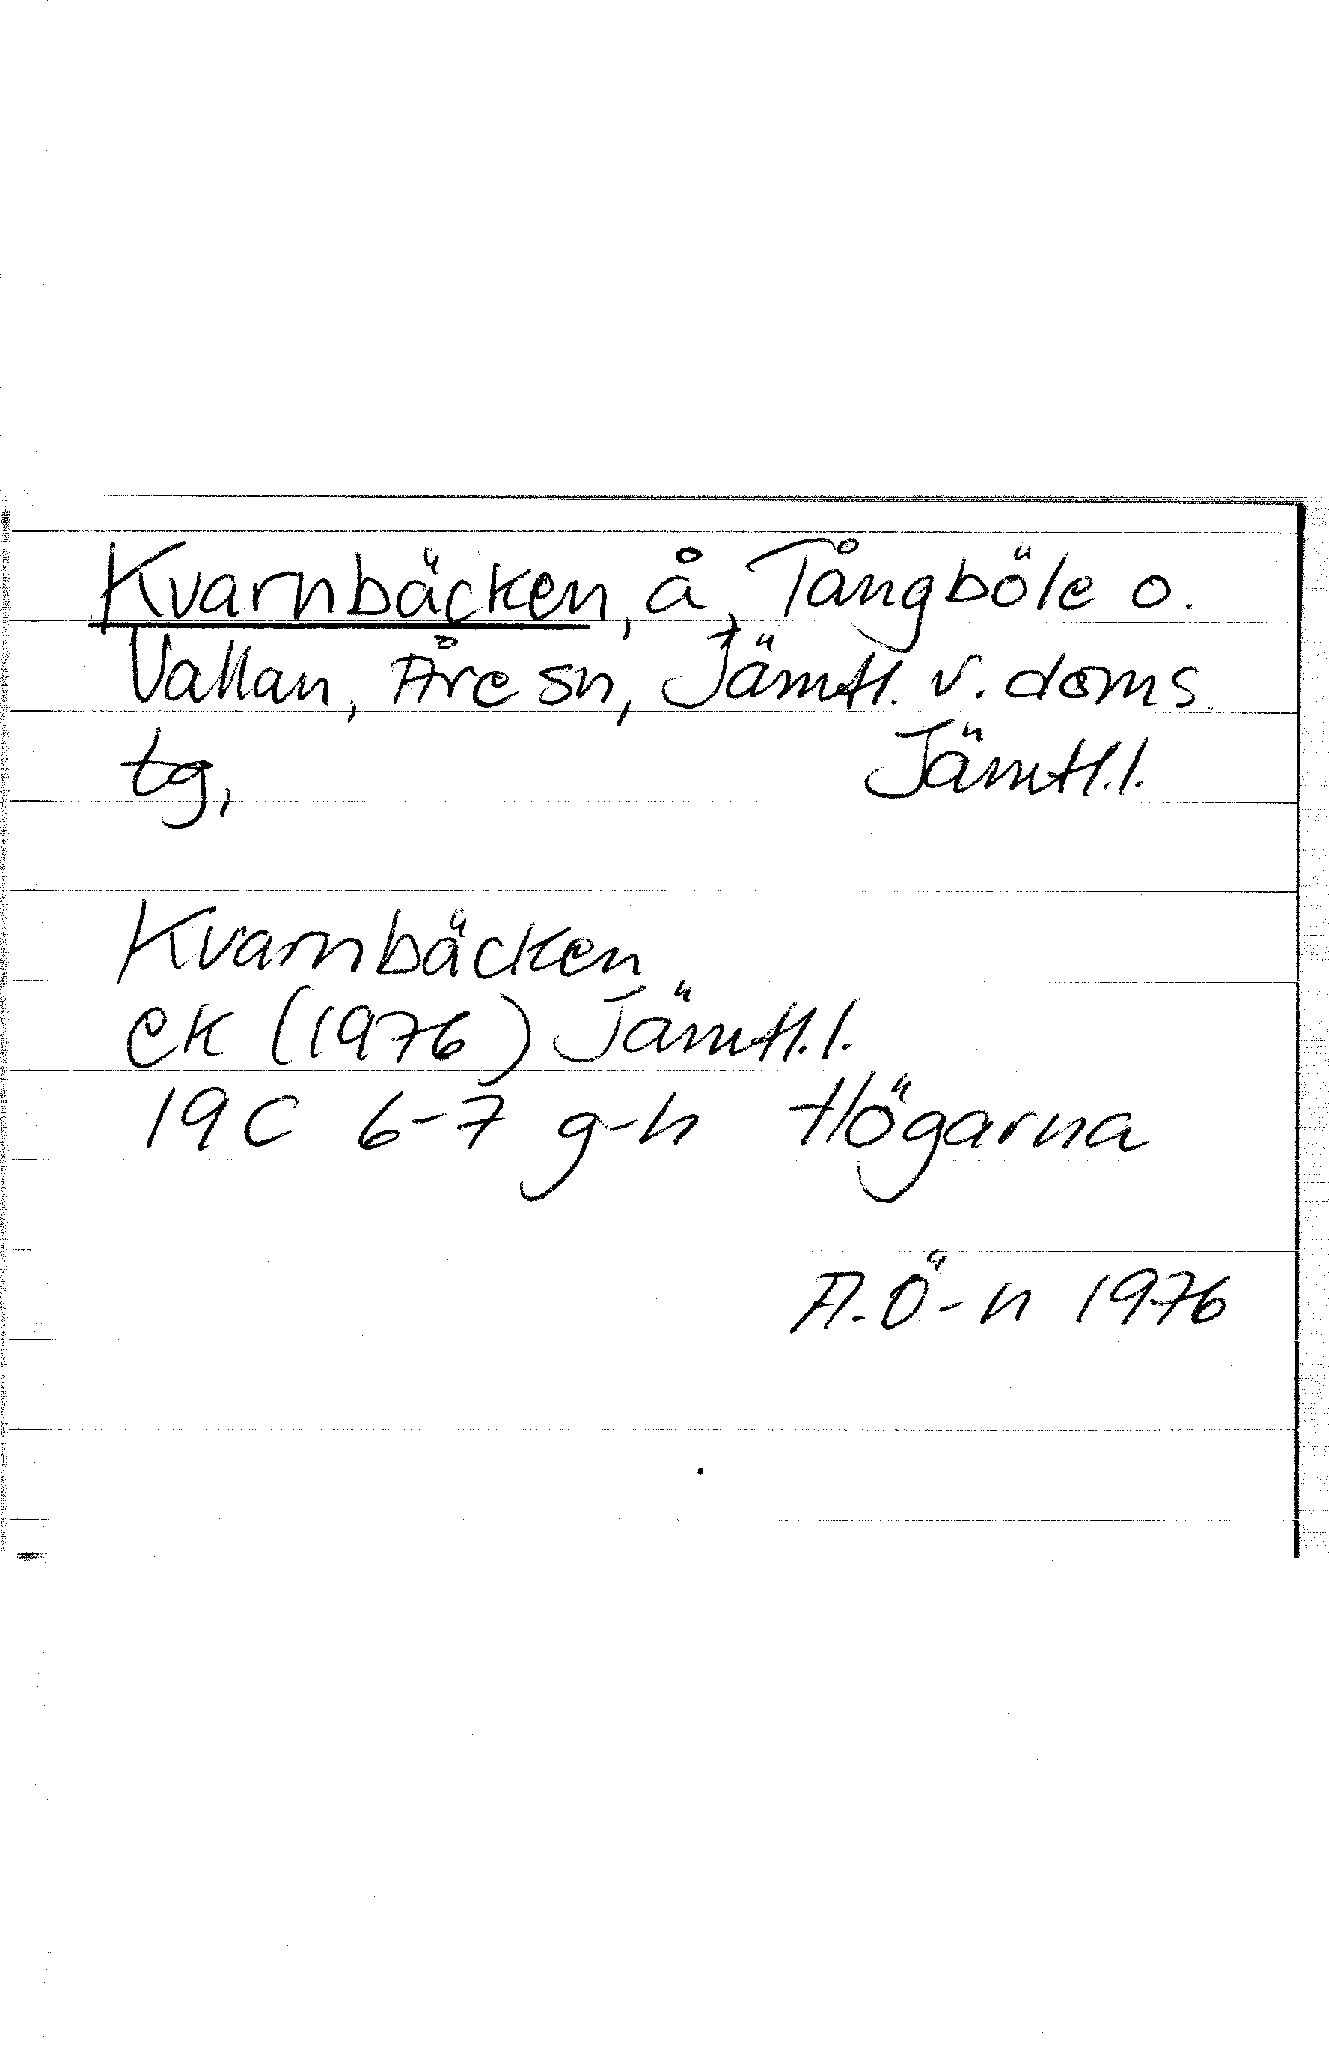 Kvarnbäcken, å, Tångböle o.
Vallan, Åre sn, Jämtl. v. doms.
tg, Jämtl.l.
Kvarnbäcken
ek (1976) Jämtl.l.
19C 6-7 g-h Högarna
A.Ö-n 1976